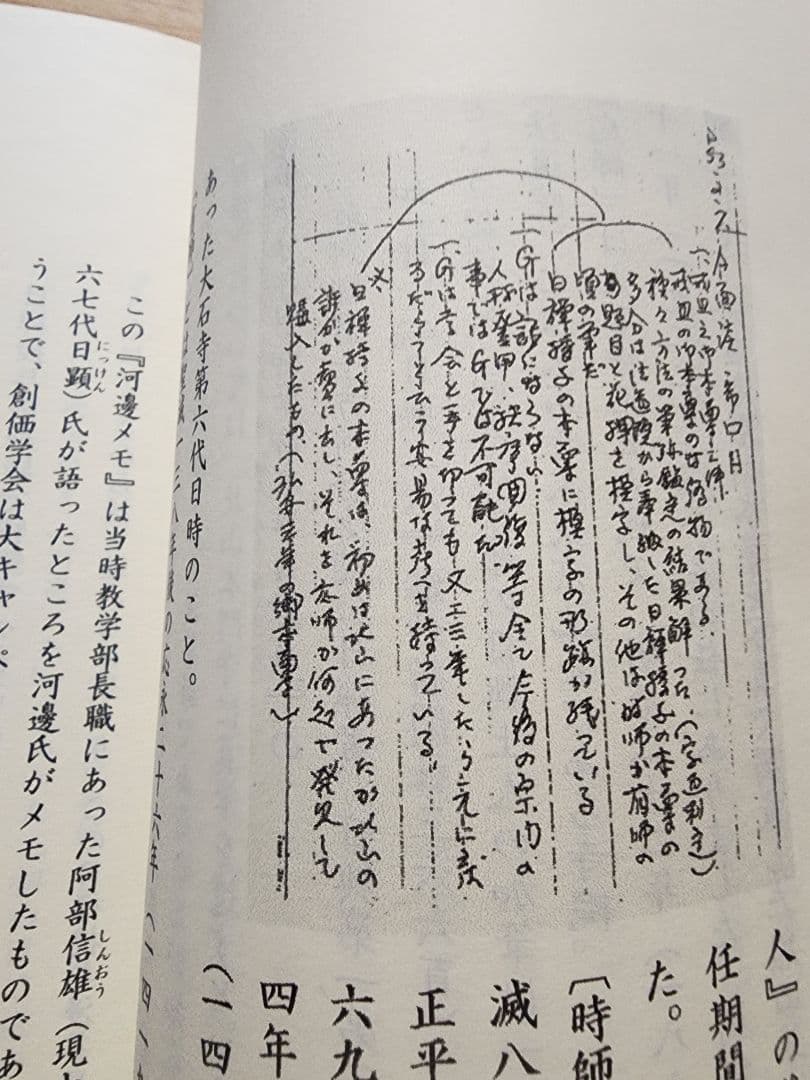 S53.2.7、A面談 帝国H
一、戒旦之御本尊之件
戒旦の御本尊のは偽物である。
種々方法の筆跡鑑定の結果解った。(字画判定)
多分は法道院から奉納した日禅授与の本尊の
題目と花押を模写し、その他は時師か有師の
頃の筆だ
日禅授与の本尊に模写の形跡が残っている
一、Gは話にならない
人材登用、秩序回復等全て今後の宗内の
事ではGでは不可能だ。
一、Gは学会と手を切っても又二三年したら元に戻
るだろうと云う安易な考へを持っている
※日禅授与の本尊は、初めは北山にあったが北山の
誰かが売に出し、それを応師が何処で発見して
購入したもの。(弘安三年の御本尊)
人』の
任期間
た。
〔時師
滅八
正平
六九
四年
(一四
あった大石寺第六代日時のこと。
年後の応永二十六年(一四一九
この『河邊メモ』は当時教学部長職にあった阿部信雄(現
六七代日顕)氏が語ったところを河邊氏がメモしたものであ
うことで、創価学会は大キャンペ